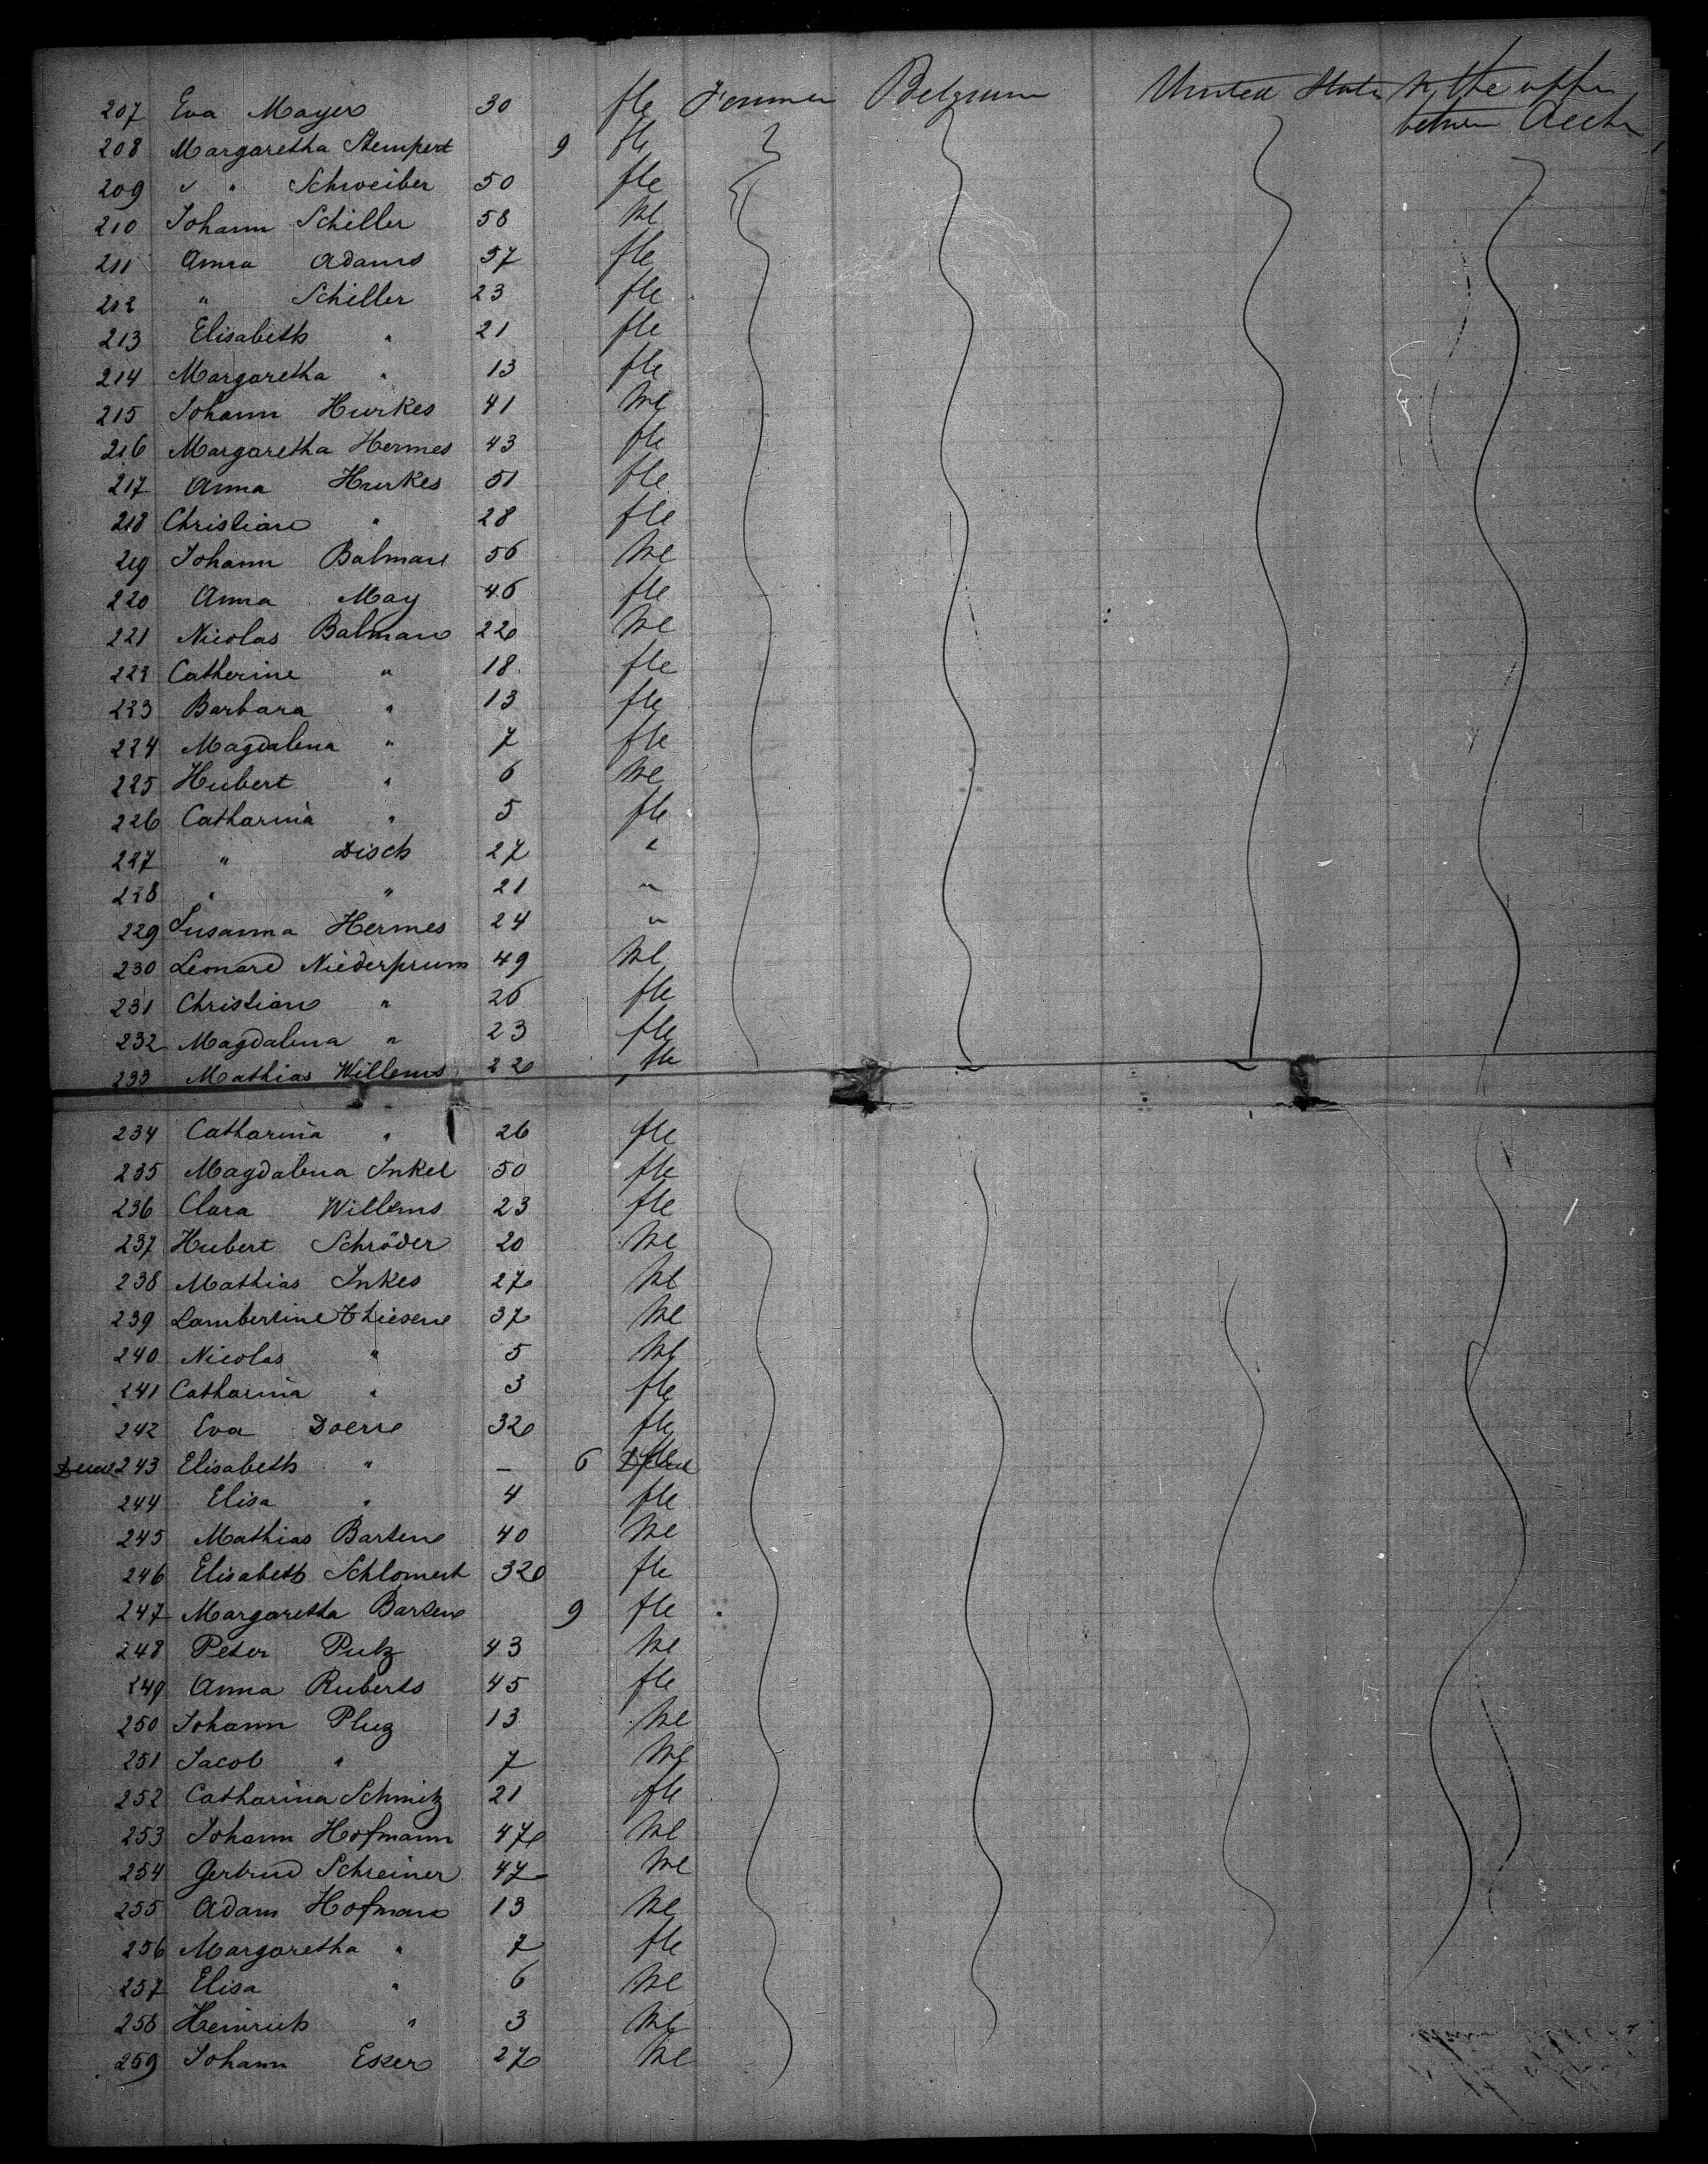 207 Eva Mayer 30 fle Farmer Belgium United States In the upper
between Decks
208 Margaretha Stempert 9 fle
209 " " Schweiber 50 fle
210 Johann Schiller 58 Me
211 Anna Adams 57 fle
212 " Schiller 23 fle
213 Elisabeth " 21 fle
214 Margaretha " 13 fle
215 Johann Hurkes 41 Me
216 Margaretha Hermes 43 fle
217 Anna Hurkes 51 fle
218 Christian " 28 fle
219 Johann Balman 56 Me
220 Anna May 46 fle
221 Nicolas Balman 22 Me
222 Catherine " 18 fle
223 Barbara " 13 fle
224 Magdalena " 7 fle
225 Hubert " 6 Me
226 Catharina " 5 fle
227 " Disch 27 "
228 " " 21 "
229 Susanna Hermes 24 "
230 Leonard Niederprum 49 Me
231 Christian " 26 fle
232 Magdalena " 23 fle
233 Mathias Willems 22 fle
234 Catharina " 26 fle
235 Magdalena Inkel 50 fle
236 Clara Willems 23 fle
237 Hubert Schröder 20 Me
238 Mathias Inkes 27 Me
239 Lambertine Thiesen 37 Me
240 Nicolas " 5 Me
241 Catharina " 3 fle
242 Eva Doern 32 fle
243 Elisabeth " – 6 fle
244 Elisa " 4 fle
245 Mathias Barten 40 Me
246 Elisabeth Schlomert 32 fle
247 Margaretha Barten 9 fle
248 Peter Putz 43 Me
249 Anna Ruberts 45 fle
250 Johann Pluz 13 Me
251 Jacob " 7 Me
252 Catharina Schmitz 21 fle
253 Johann Hofmann 47 Me
254 Gertrud Schreiner 47 Me
255 Adam Hofman 13 Me
256 Margaretha " 7 fle
257 Elisa " 6 Me
258 Heinrich " 3 Me
259 Johann Esker 27 Me